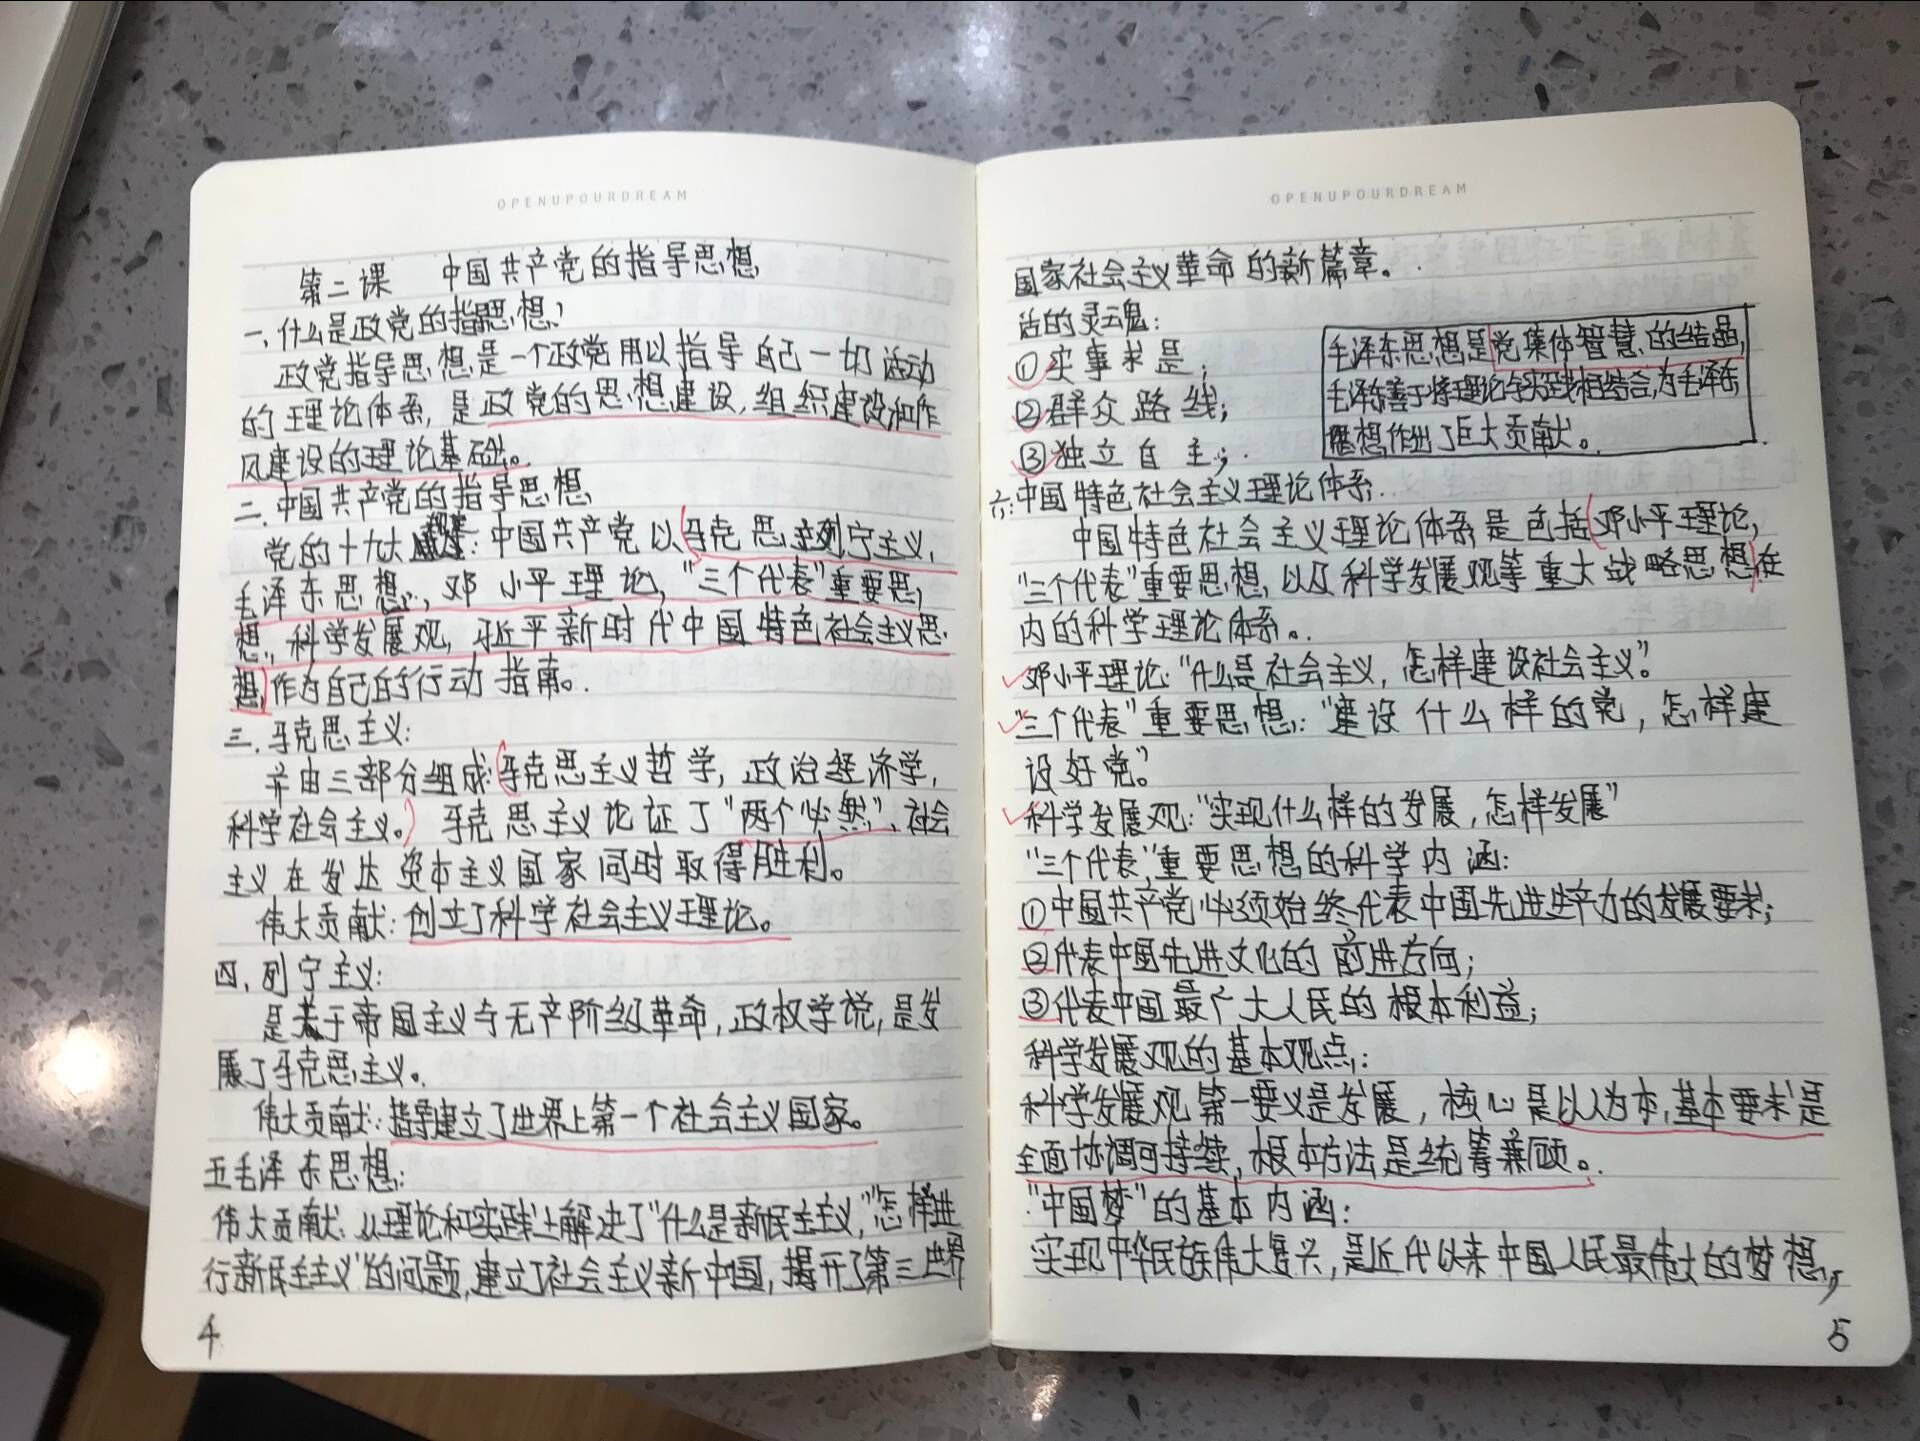 OPENUPOURDREAM
第二课 中国共产党的指导思想
一、什么是政党的指导思想?
政党指导思想是一个政党用以指导自己一切活动
的理论体系,是政党的思想建设,组织建设和作
风建设的理论基础。
二、中国共产党的指导思想
党的十九大 : 中国共产党以(马克思主列宁主义,
毛泽东思想,邓小平理论,"三个代表"重要思
想,科学发展观,习近平新时代中国特色社会主义思
想)作为自己的行动指南。
三、马克思主义:
并由三部分组成:(马克思主义哲学,政治经济学,
科学社会主义。)马克思主义论证了"两个必然",社会
主义在发达资本主义国家同时取得胜利。
伟大贡献:创立了科学社会主义理论。
四、列宁主义:
是关于帝国主义与无产阶级革命,政权学说,是发
展了马克思主义。
伟大贡献:指导建立了世界上第一个社会主义国家。
五毛泽东思想:
伟大贡献:从理论和实践上解决了"什么是新民主主义,""怎样进
行新民主主义"的问题,建立了社会主义新中国,揭开了第三世界
4
OPENUPOURDREAM
国家社会主义革命的新篇章。
活的灵魂:
①实事求是;
②群众路线;
③独立自主;
毛泽东思想是党集体智慧的结晶,
毛泽东善于将理论与实践相结合,为毛泽东
思想作出了巨大贡献。
六:中国特色社会主义理论体系.
中国特色社会主义理论体系是包括(邓小平理论,
"三个代表"重要思想,以及科学发展观等重大战略思想)在
内的科学理论体系。
邓小平理论:"什么是社会主义,怎样建设社会主义"。
"三个代表"重要思想:"建设什么样的党,怎样建
设好党。"
科学发展观:"实现什么样的发展,怎样发展"
"三个代表"重要思想的科学内涵:
①中国共产党必须始终代表中国先进生产力的发展要求;
②代表中国先进文化的前进方向;
③代表中国最广大人民的根本利益;
科学发展观的基本观点:
科学发展观第一要义是发展,核心是以人为本,基本要求是
全面协调可持续,根本方法是统筹兼顾。
"中国梦"的基本内涵:
实现中华民族伟大复兴,是近代以来中国人民最伟大的梦想,
5